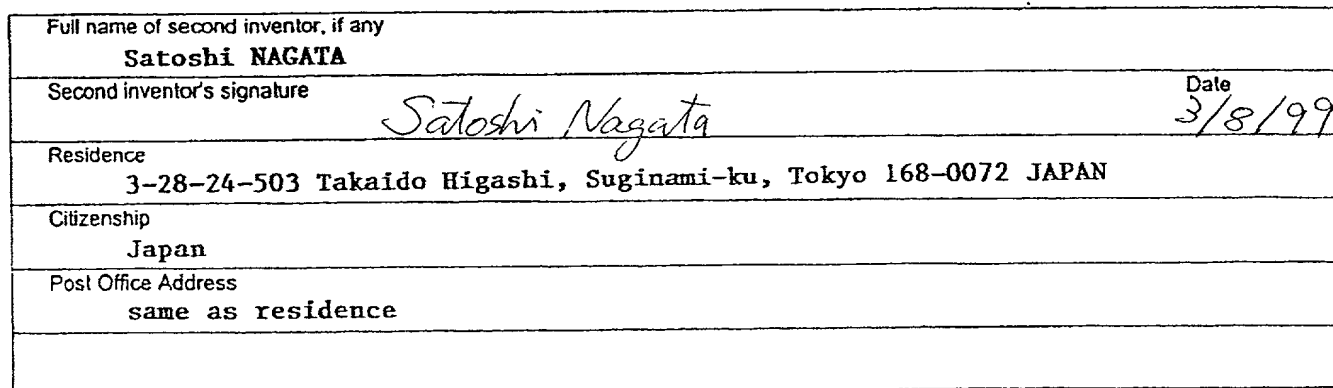 Full name of second inventor, if any
Satoshi NAGATA
Second inventor's signature
Satoshi Nagata
Date
3/8/99
Residence
3-28-24-503 Takaido Higashi, Suginami-ku, Tokyo 168-0072 JAPAN
Citizenship
Japan
Post Office Address
same as residence